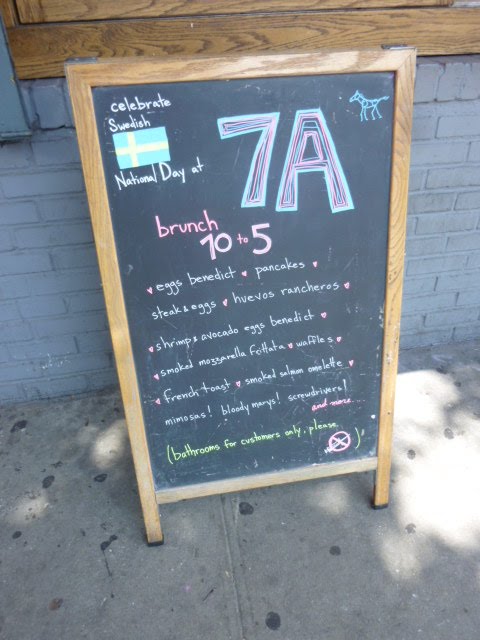 celebrate
Swedish
National Day at
7A
brunch
10 to 5
eggs benedict ♥ pancakes ♥
steak & eggs ♥ huevos rancheros ♥
shrimp & avocado eggs benedict ♥
smoked mozzarella frittata ♥ waffles ♥
french toast ♥ smoked salmon omelette ♥
mimosas! bloody marys! screwdrivers!
and more...
(bathrooms for customers only, please.)